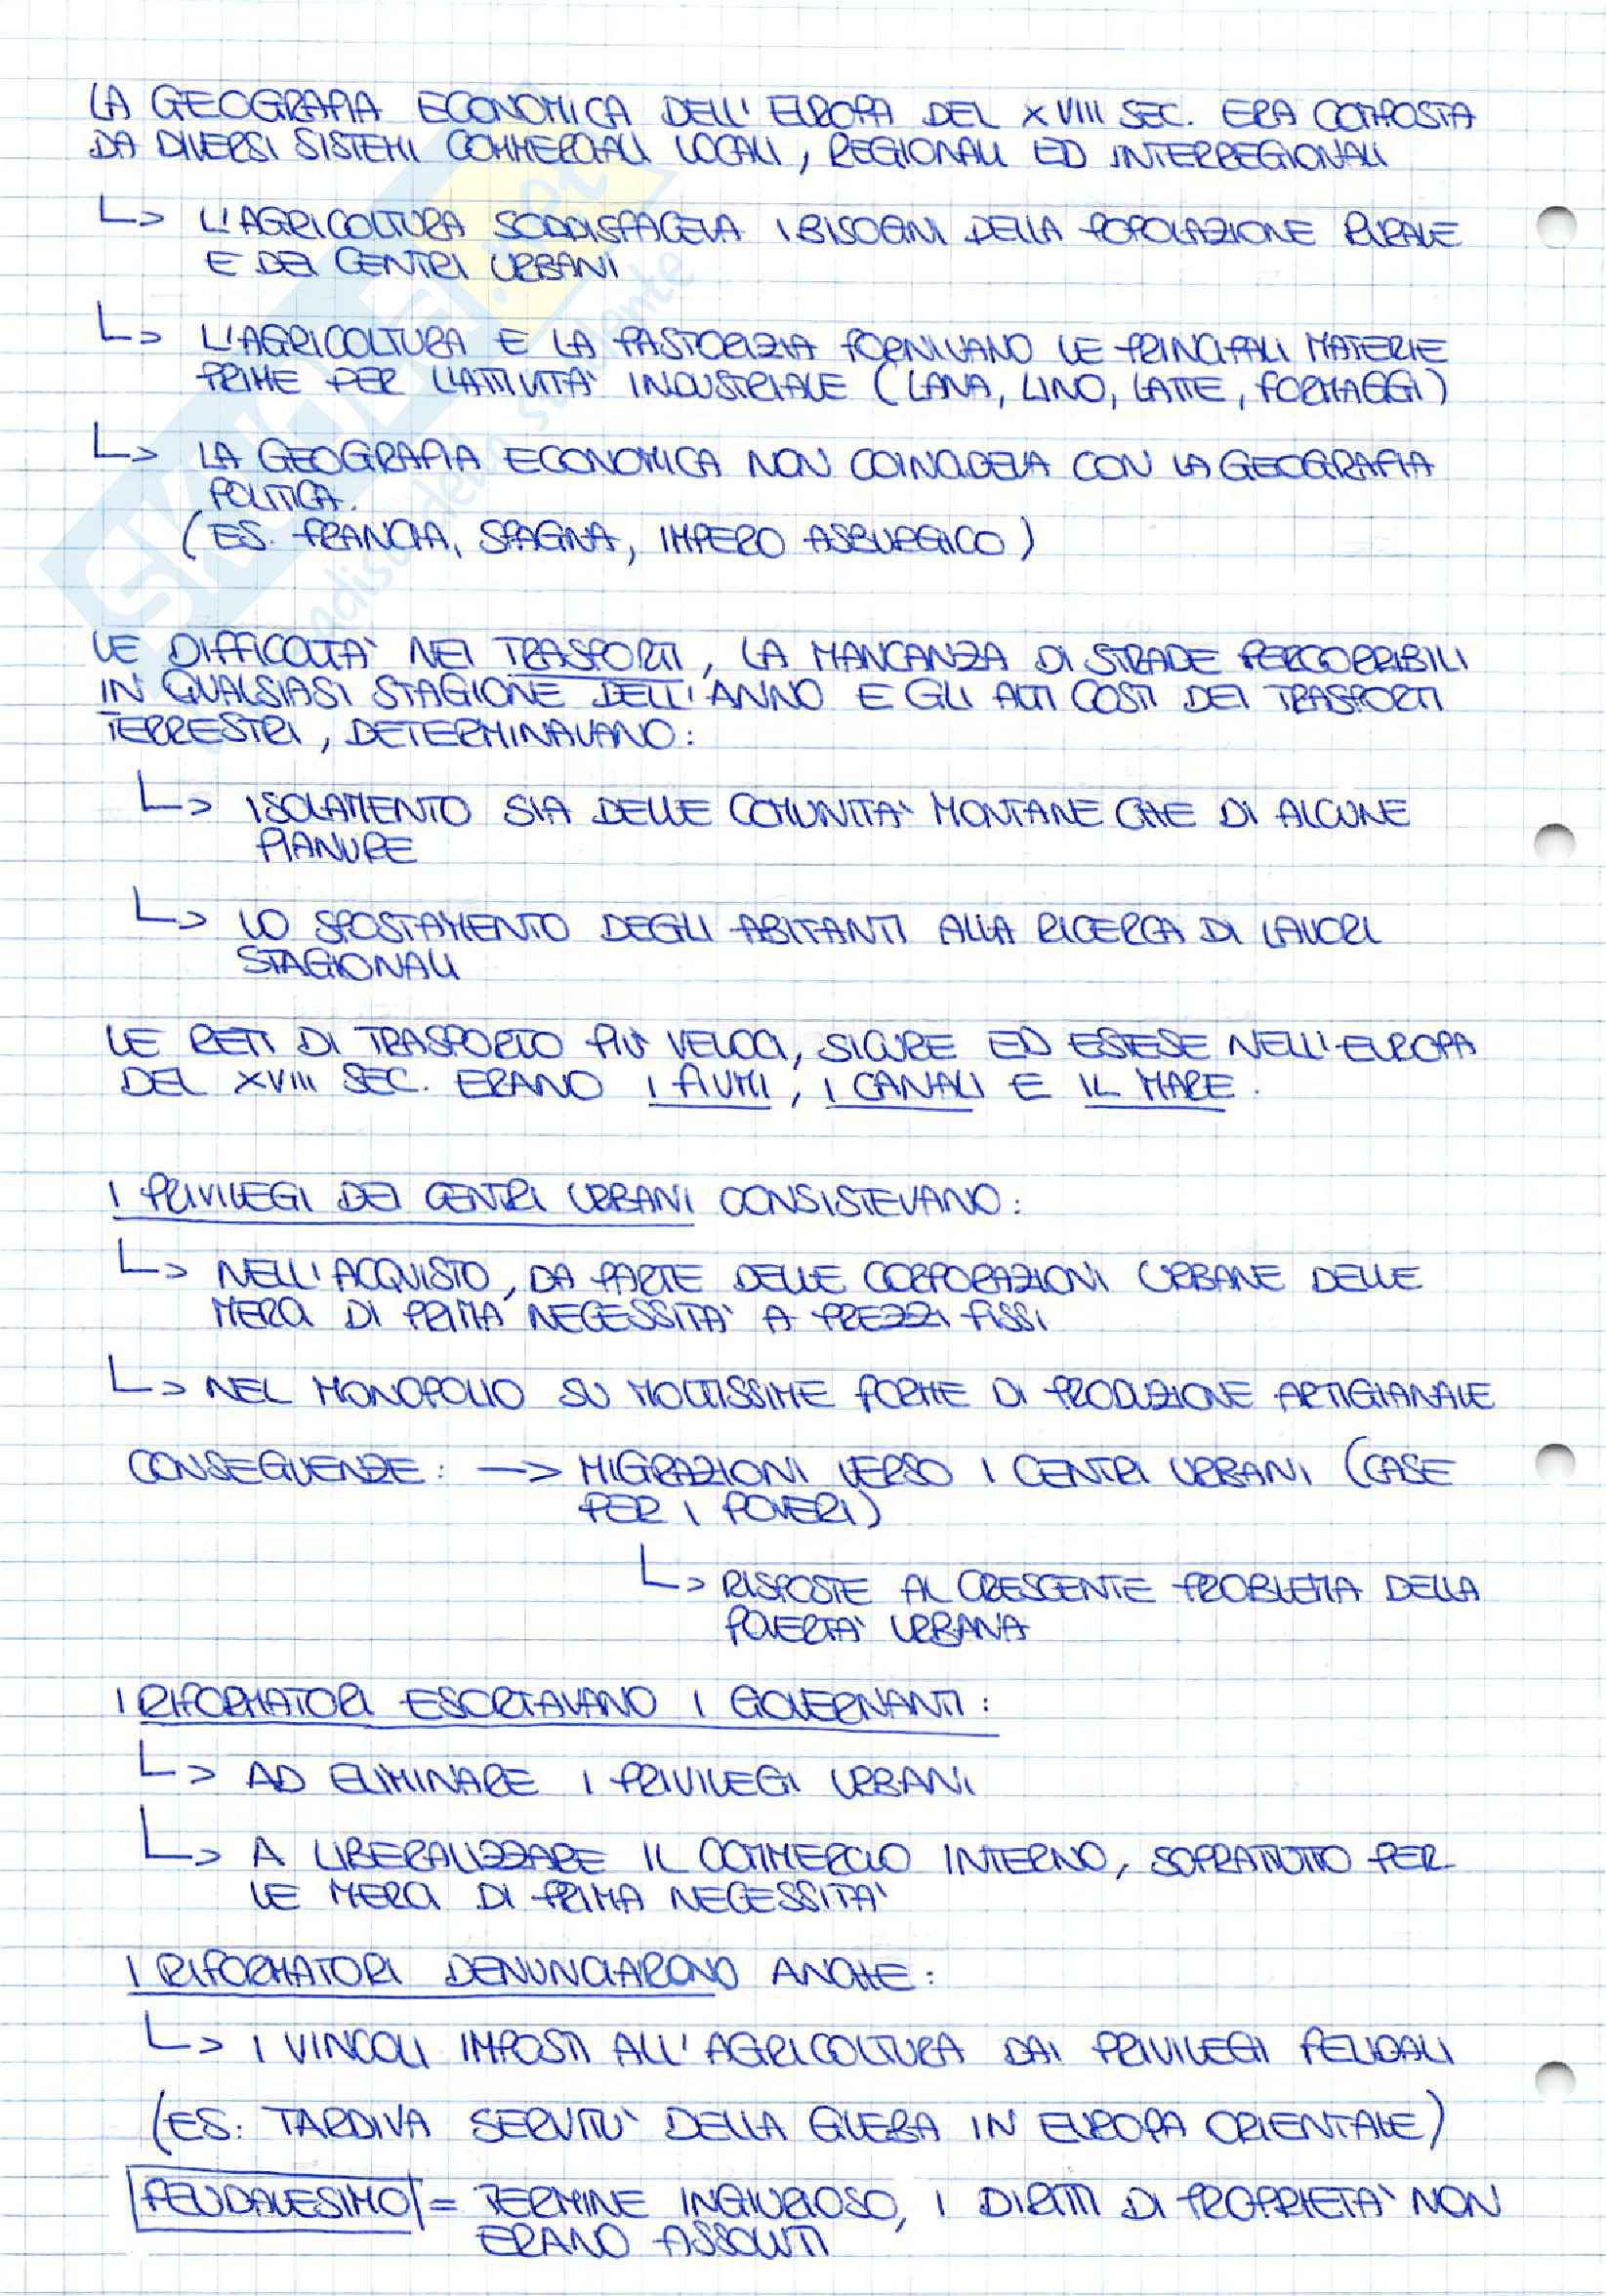 LA GEOGRAFIA ECONOMICA DELL'EUROPA DEL XVIII SEC. ERA COMPOSTA
DA DIVERSI SISTEMI COMMERCIALI LOCALI, REGIONALI ED INTERREGIONALI
↳ L'AGRICOLTURA SODDISFACEVA I BISOGNI DELLA POPOLAZIONE RURALE
E DEI CENTRI URBANI
↳ L'AGRICOLTURA E LA PASTORIZIA FORNIVANO LE PRINCIPALI MATERIE
PRIME PER L'ATTIVITA' INDUSTRIALE (LANA, LINO, LATTE, FORMAGGI)
↳ LA GEOGRAFIA ECONOMICA NON COINCIDEVA CON LA GEOGRAFIA
POLITICA.
(ES. FRANCIA, SPAGNA, IMPERO ASBURGICO)
LE DIFFICOLTA' NEI TRASPORTI, LA MANCANZA DI STRADE PERCORRIBILI
IN QUALSIASI STAGIONE DELL'ANNO E GLI ALTI COSTI DEI TRASPORTI
TERRESTRI, DETERMINAVANO:
↳ ISOLAMENTO SIA DELLE COMUNITA' MONTANE CHE DI ALCUNE
PIANURE
↳ LO SPOSTAMENTO DEGLI ABITANTI ALLA RICERCA DI LAVORI
STAGIONALI
LE RETI DI TRASPORTO PIU' VELOCI, SICURE ED ESTESE NELL'EUROPA
DEL XVIII SEC. ERANO I FIUMI, I CANALI E IL MARE.
I PRIVILEGI DEI CENTRI URBANI CONSISTEVANO:
↳ NELL'ACQUISTO, DA PARTE DELLE CORPORAZIONI URBANE DELLE
MERCI DI PRIMA NECESSITA' A PREZZI FISSI
↳ NEL MONOPOLIO SU MOLTISSIME FORME DI PRODUZIONE ARTIGIANALE
CONSEGUENZE: —> MIGRAZIONI VERSO I CENTRI URBANI (CASE
PER I POVERI)
↳ RISPOSTE AL CRESCENTE PROBLEMA DELLA
POVERTA' URBANA
I RIFORMATORI ESORTAVANO I GOVERNANTI:
↳ AD ELIMINARE I PRIVILEGI URBANI
↳ A LIBERALIZZARE IL COMMERCIO INTERNO, SOPRATTUTTO PER
LE MERCI DI PRIMA NECESSITA'
I RIFORMATORI DENUNCIARONO ANCHE:
↳ I VINCOLI IMPOSTI ALL'AGRICOLTURA DAI PRIVILEGI FEUDALI
(ES: TARDIVA SERVITU' DELLA GLEBA IN EUROPA ORIENTALE)
FEUDALESIMO = TERMINE INGIURIOSO, I DIRITTI DI PROPRIETA' NON
ERANO ASSOLUTI